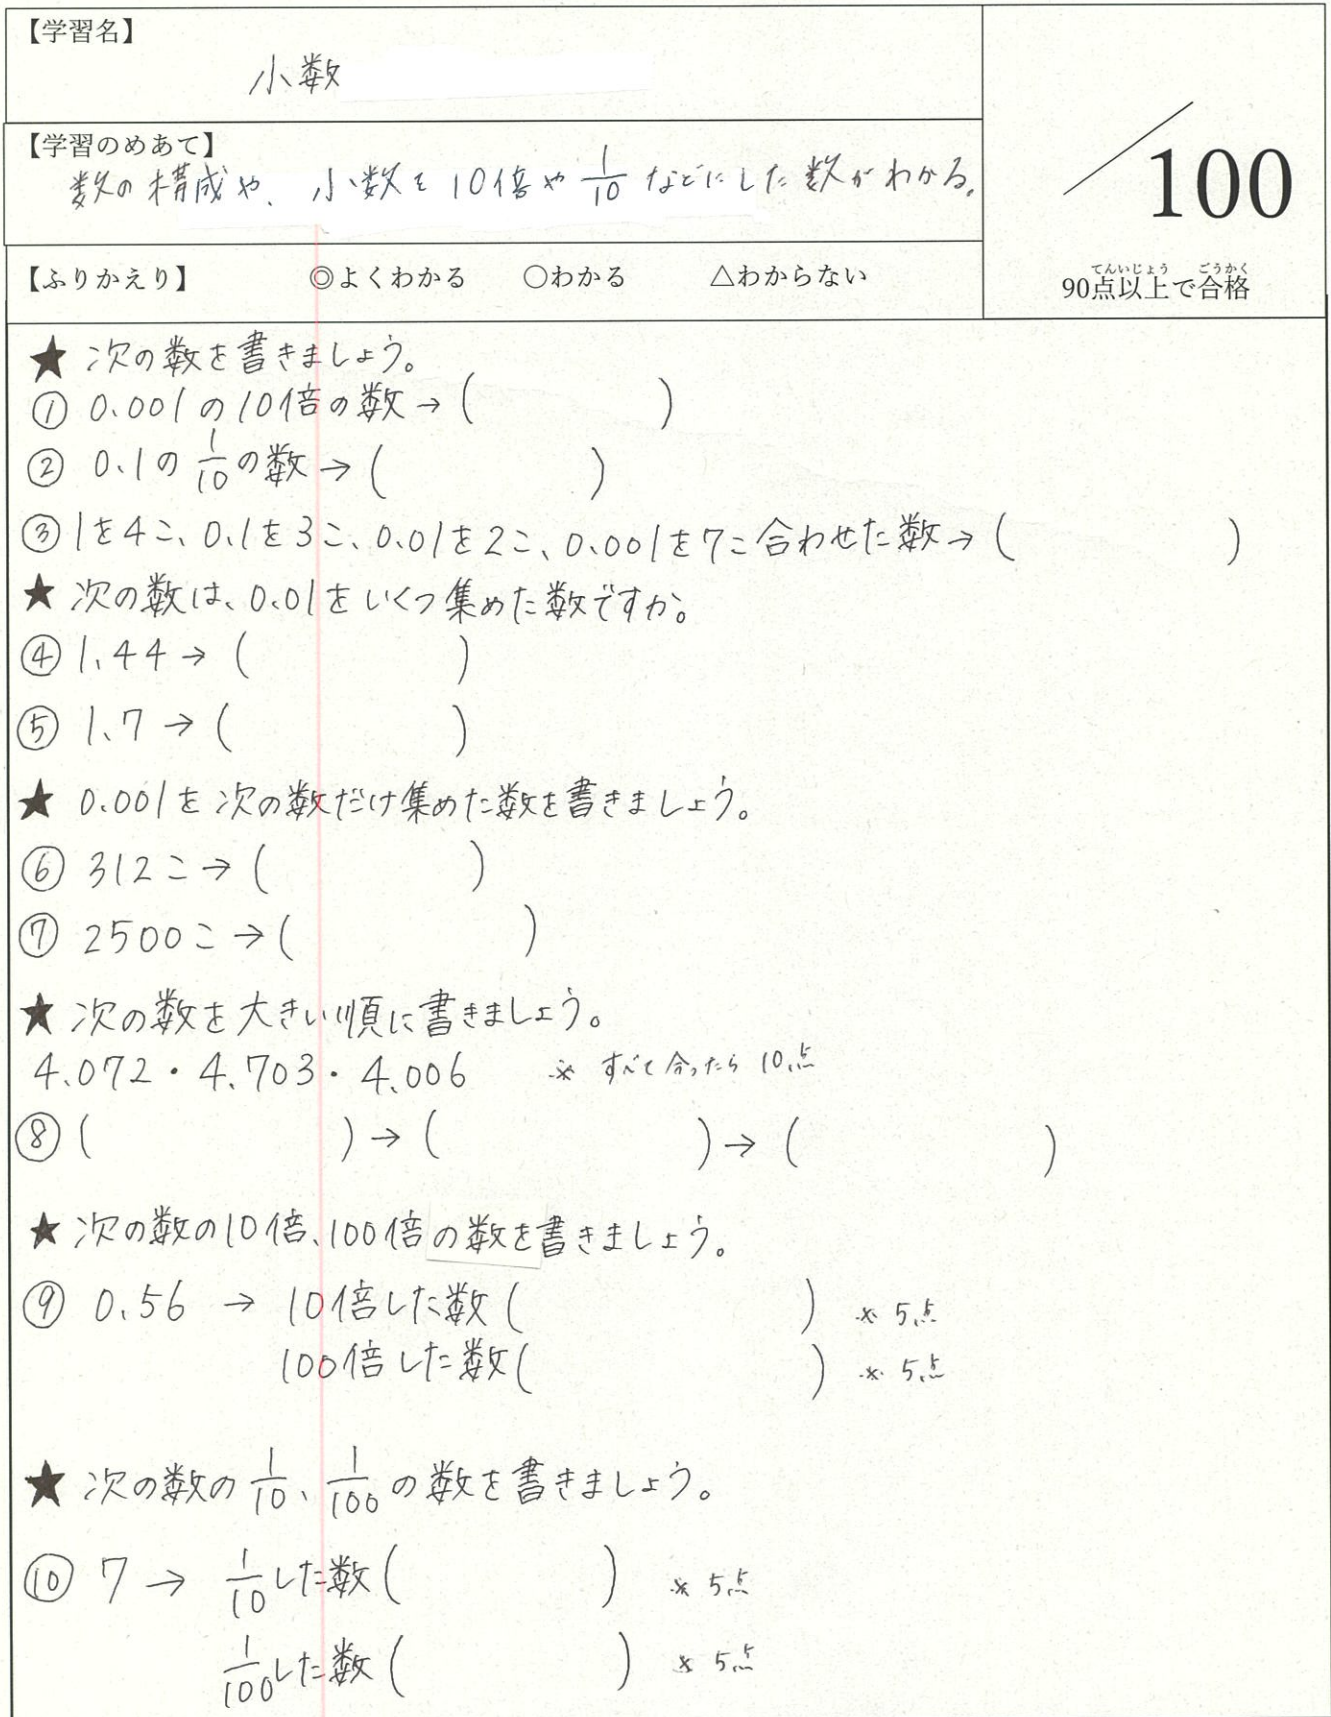 【学習名】
小数
【学習のめあて】
数の構成や、小数を10倍や1/10などにした数がわかる。
／100
てんいじょう ごうかく
90点以上で合格
【ふりかえり】 ◎よくわかる ○わかる △わからない
★ 次の数を書きましょう。
① 0.001の10倍の数→( )
② 0.1の1/10の数→( )
③ 1を4こ、0.1を3こ、0.01を2こ、0.001を7こ合わせた数→( )
★ 次の数は、0.01をいくつ集めた数ですか。
④ 1.44→( )
⑤ 1.7→( )
★ 0.001を次の数だけ集めた数を書きましょう。
⑥ 312こ→( )
⑦ 2500こ→( )
★ 次の数を大きい順に書きましょう。
4.072・4.703・4.006 ※すべて合ったら10点
⑧ ( )→( )→( )
★ 次の数の10倍、100倍の数を書きましょう。
⑨ 0.56 → 10倍した数( ) ※5点
100倍した数( ) ※5点
★ 次の数の1/10、1/100の数を書きましょう。
⑩ 7→ 1/10した数( ) ※5点
1/100した数( ) ※5点